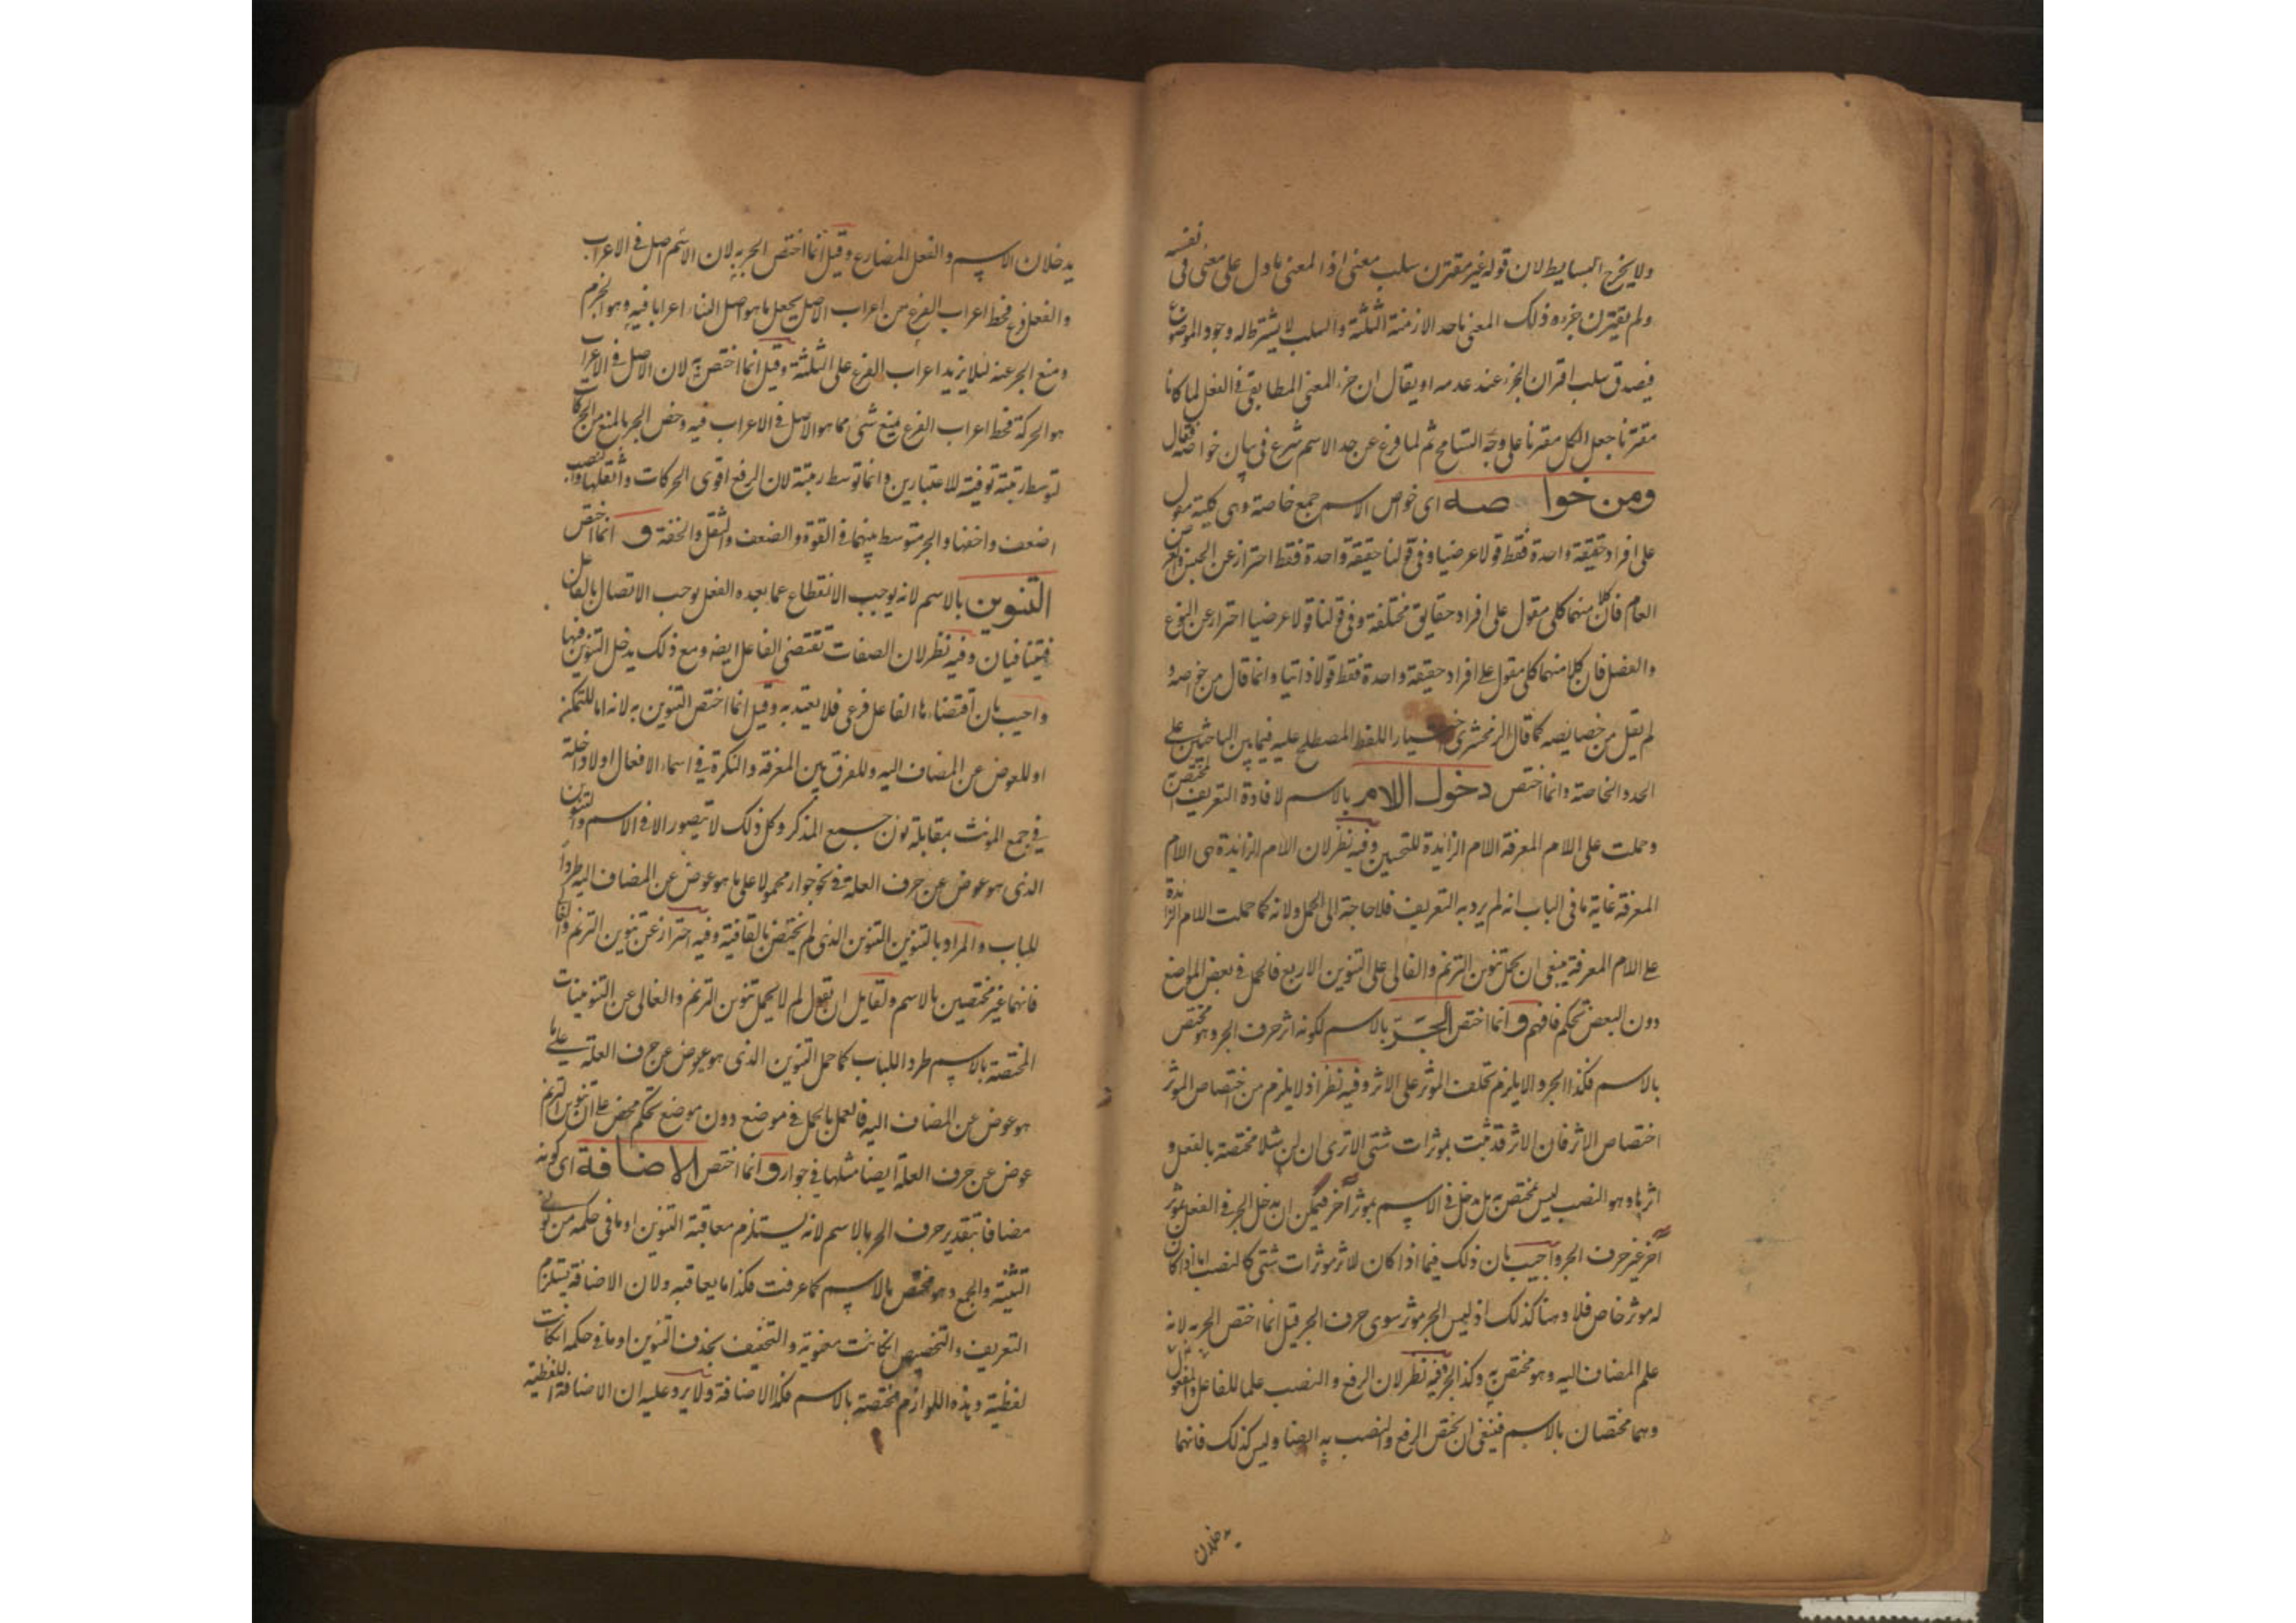 ولا يخرج البسايط لان قوله غير مقترن سلب معنى اذ المعنى ما دل على معنى فى نفسه
ولم يقترن جزء ذلك المعنى باحد الازمنة الثلثة والسلب لا يشترط له وجود الموضوع
فيصدق سلب اقتران الجزء عند عدمه او يقال ان جزء المعنى المطابقى فى الفعل لما كانا
مقترنا جعل الكل مقترنا على وجه التسامح ثم لما فرغ عن حد الاسم شرع فى بيان خواصه فقال
ومن خواصه اى خواص الاسم جمع خاصة وهى كلية مقول
على افراد حقيقة واحدة فقط قولا عرضيا وفى قولنا حقيقة واحدة فقط احتراز عن الجنس والعرض
العام فان كلا منهما كلى مقول على افراد حقايق مختلفة وفى قولنا قولا عرضيا احتراز عن النوع
والفصل فان كلا منهما كلى مقول على افراد حقيقة واحدة فقط قولا ذاتيا وانما قال من خواصه و
لم يقل من خصايصه كما قال الزمخشرى اختيار اللفظ المصطلح عليه فيما بين الباحثين على
الحد والخاصة وانما اختص دخول اللام بالاسم لافادة التعريف المختص به
وحملت على اللام المعرفة اللام الزايدة للتحسين وفيه نظر لان اللام الزايدة هى اللام
المعرفة غاية ما فى الباب انه لم يرد به التعريف فلا حاجة الى الحمل ولانه كما حملت اللام الزايدة
على اللام المعرفة ينبغى ان يحمل تنوين الترنم والغالى على التنوين الاربع فالحمل فى بعض المواضع
دون البعض تحكم فافهم و انما اختص الجر بالاسم لكونه اثر حرف الجر وهو مختص
بالاسم فكذا الجر والا يلزم تخلف الموثر على الاثر وفيه نظر اذ لا يلزم من اختصاص الموثر
اختصاص الاثر فان الاثر قد ثبت بموثرات شتى الا ترى ان لن مثلا مختصة بالفعل و
اثرها وهو النصب ليس بمختص به بل يدخل فى الاسم بموثر آخر فيمكن ان يدخل الجر فى الفعل بموثر
آخر غير حرف الجر واجيب بان ذلك فيما اذا كان للاثر موثرات شتى كالنصب اما اذا كان
له موثر خاص فلا وهنا كذلك اذ ليس الجر موثر سوى حرف الجر قيل انما اختص الجر به لانه
علم المضاف اليه وهو مختص به وكذا الجر وفيه نظر لان الرفع والنصب علما للفاعل والمفعول
وهما مختصان بالاسم فينبغى ان يختص الرفع والنصب به ايضا وليس كذلك فانهما
يدخلان
يدخلان الاسم والفعل المضارع وقيل انما اختص الجر به لان الاسم اصل فى الاعراب
والفعل فرع فحط اعراب الفرع من اعراب الاصل بجعل ما هو اصل البناء اعرابا فيه وهو الجزم
ومنع الجر عنه لئلا يزيد اعراب الفرع على الثلثة وقيل انما اختص به لان الاصل فى الاعراب
هو الحركة فحط اعراب الفرع بمنع شئ مما هو الاصل فى الاعراب فيه وخص الجر بالمنع من الحركات
لتوسط رتبته توفية للاعتبارين وانما توسط رتبته لان الرفع اقوى الحركات واثقلها والنصب
اضعف واخفها والجر متوسط بينهما فى القوة والضعف والثقل والخفة و انما اختص
التنوين بالاسم لانه يوجب الانقطاع عما بعده والفعل يوجب الاتصال بالفاعل
فيتنافيان وفيه نظر لان الصفات تقتضى الفاعل ايضه ومع ذلك يدخل التنوين فيها
واجيب بان اقتضاءها الفاعل فرعى فلا يعتد به وقيل انما اختص التنوين به لانه اما للتمكن
او للعوض عن المضاف اليه وللفرق بين المعرفة والنكرة فى اسماء الافعال اولا داخلة
فى جمع المونث بمقابلة نون جمع المذكر وكل ذلك لا يتصور الا فى الاسم والتنوين
الذى هو عوض عن حرف العلة فى نحو جوار محمولا على ما هو عوض عن المضاف اليه طردا
للباب والمراد بالتنوين التنوين الذى لم يختص بالقافية وفيه احتراز عن تنوين الترنم والغالى
فانهما غير مختصين بالاسم ولقايل ان يقول لم لا يحمل تنوين الترنم والغالى عن التنوينات
المختصة بالاسم طردا للباب كما حمل التنوين الذى هو عوض عن حرف العلة على ما
هو عوض عن المضاف اليه فالعمل بالحمل فى موضع دون موضع تحكم محض على ان تنوين الترنم
عوض عن حرف العلة ايضا مثلها فى جوار و انما اختص الاضافة اى كونه
مضافا بتقدير حرف الجر بالاسم لانه يستلزم معاقبة التنوين او ما فى حكمه من نونى
التثنية والجمع وهو مختص بالاسم كما عرفت فكذا ما يعاقبه ولان الاضافة يستلزم
التعريف والتخصيص ان كانت معنوية والتخفيف بحذف التنوين او ما فى حكمه ان كانت
لفظية وهذه اللوازم مختصة بالاسم فكذا الاضافة ولا يرد عليه ان الاضافة اللفظية